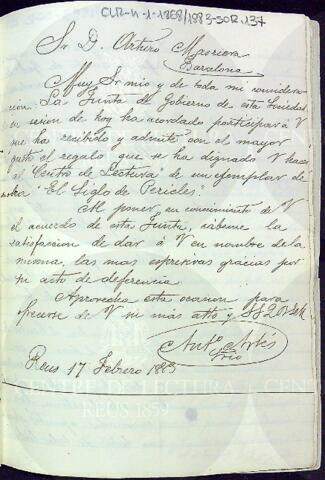 CLR-4-1-1868/1883-SOR.137
Sr D. Arturo Masriera
Barcelona
Muy Sr mio y de toda mi considera-
cion. La Junta de Gobierno de esta Sociedad
en sesion de hoy ha acordado participar á V
que ha recibido y admite con el mayor
gusto el regalo que se ha dignado V hacer
al "Centro de Lectura" de un ejemplar de
obra "El Siglo de Pericles."
Al poner en conocimiento de V
el acuerdo de esta Junta, cábeme la
satisfaccion de dar á V en nombre de la
misma, las mas espresivas gracias por
su acto de deferencia.
Aprovecho esta ocasion para
ofrecerse de V su más atto y SS
Anto
Srio
Reus 17 Febrero 1883
CENTRE DE LECTURA
REUS 1859
CENT